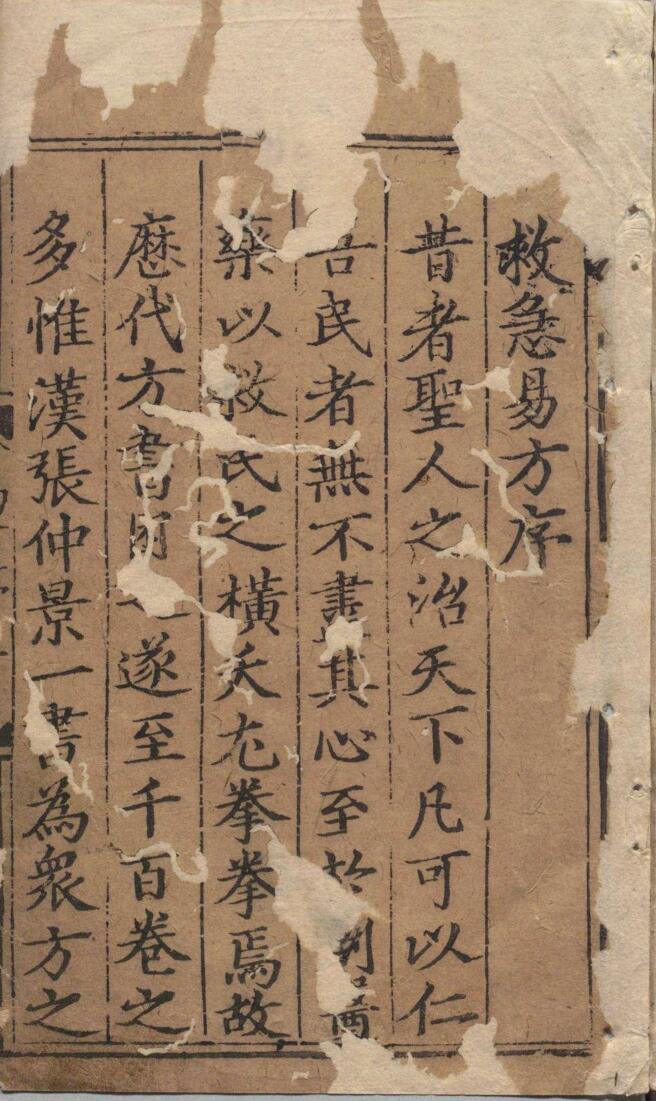 救急易方序
昔者聖人之治天下凡可以仁
吾民者無不盡其心至於制醫
藥以救民之橫夭尤拳拳焉故
歷代方書遂至千百卷之
多惟漢張仲景一書為衆方之